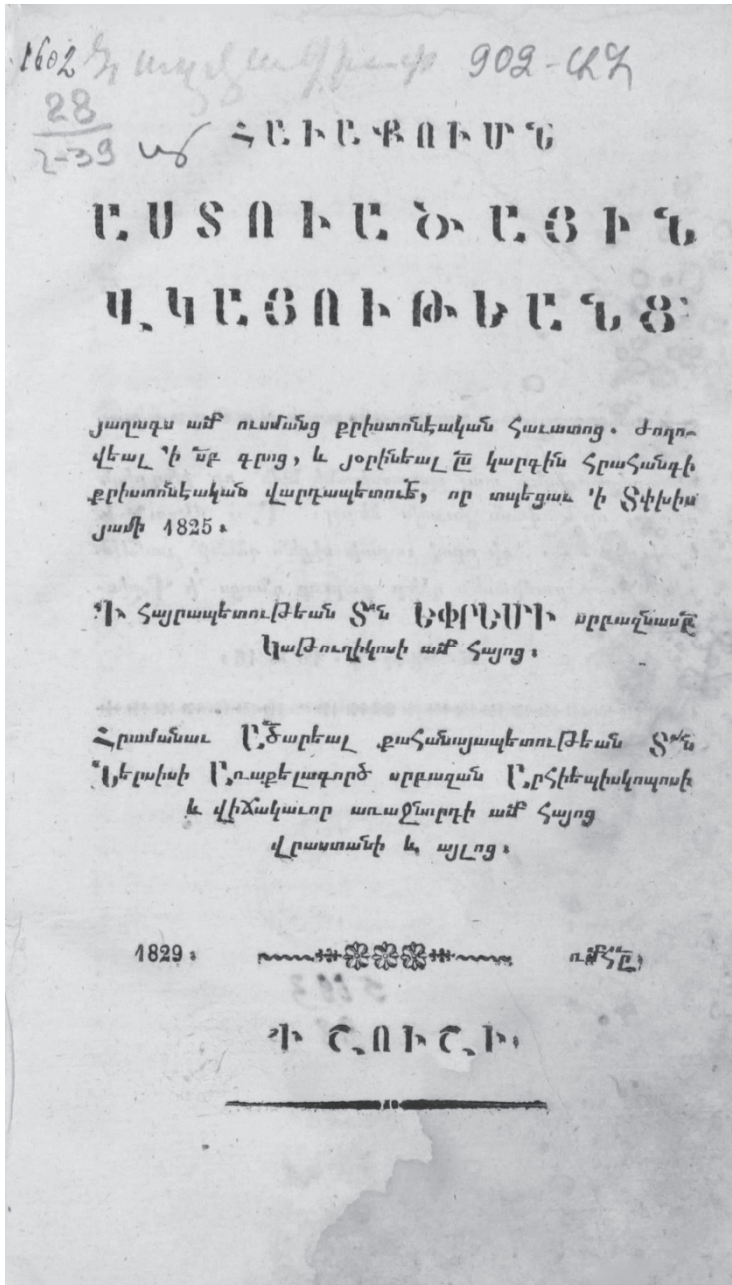 1602
902-ԱՀ
28
2-39
ՀԱՒԱՔՈՒՄՆ
ԱՍՏՈՒԱԾԱՅԻՆ
ՎԿԱՅՈՒԹԵԱՆՑ
յաղագս ամ՟ ուսմանց քրիստոնէական հաւատոց. ժողո֊
վեալ ՚ի ս՟բ գրոց, և յօրինեալ ը՟ս կարգին հրահանգի
քրիստոնէական վարդապետուե՟, որ տպեցաւ ՚ի Տփխիս
յամի 1825։
՚Ի հայրապետութեան Տ՟ն ԵՓՐԵՄԻ սրբազնասն՟ը
Կաթուղիկոսի ամ՟ հայոց։
Հրամանաւ Ը՟ծարեալ քահանայապետութեան Տ՟ն
Ներսիսի Առաքելագործ սրբազան Արհիեպիսկոպոսի
և վիճակաւոր առաջնորդի ամ՟ հայոց
վրաստանի և այլոց։
1829։ ռմհը։
՚Ի ՇՈՒՇԻ։